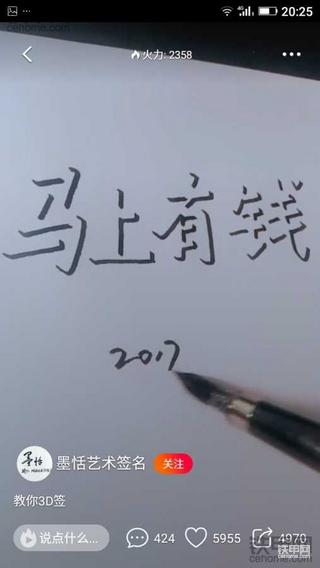 20:25
铁甲网
cehome.com
火力: 2358
马上有钱
2017
墨恬
墨恬艺术签名
关注
教你3D签
说点什么...
424
5955
4970
铁甲网
cehome.com
铁甲网